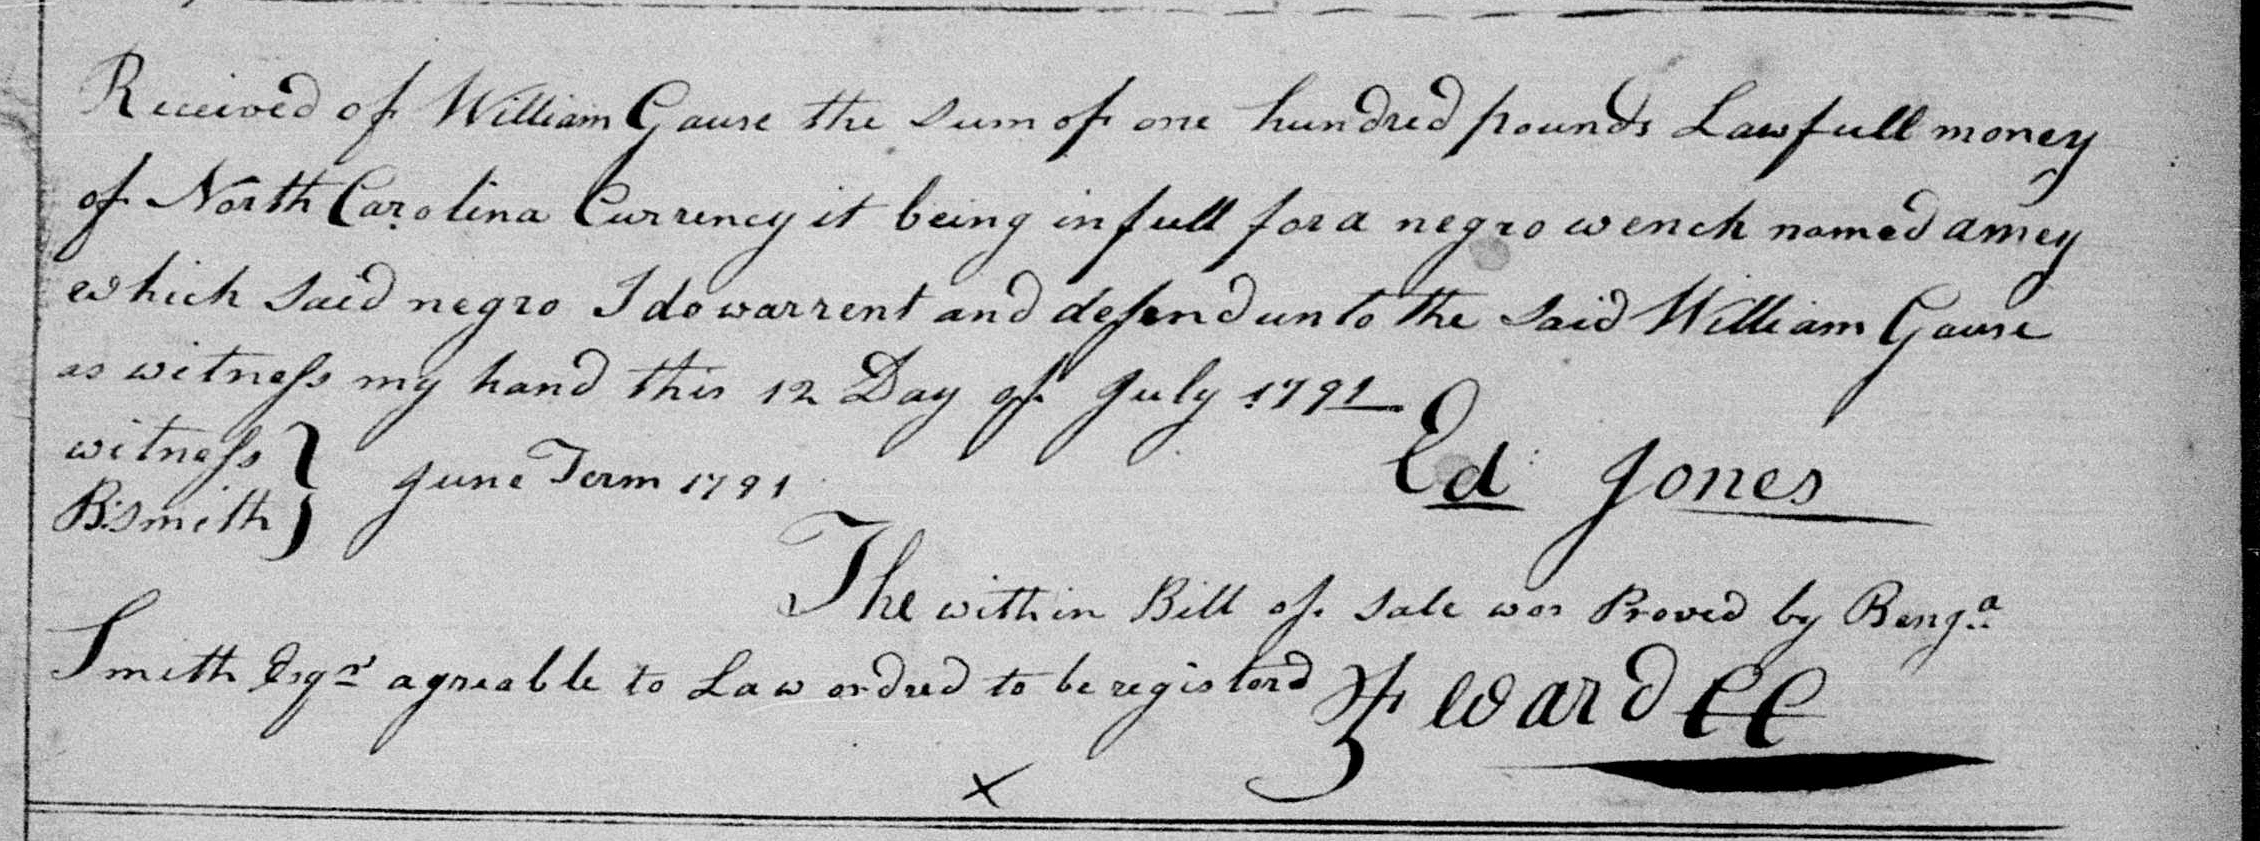 Received of William Gause the sum of one hundred pounds Lawfull money
of North Carolina Currency it being in full for a negro wench named amey
which said negro I do warrent and defend unto the said William Gause
as witness my hand this 12 Day of July 1791
witness
B. Smith } June Term 1791
Ed: Jones
The within Bill of sale was Proved by Benja
Smith Esqr agreable to Law ordred to be registerd
Ward CC